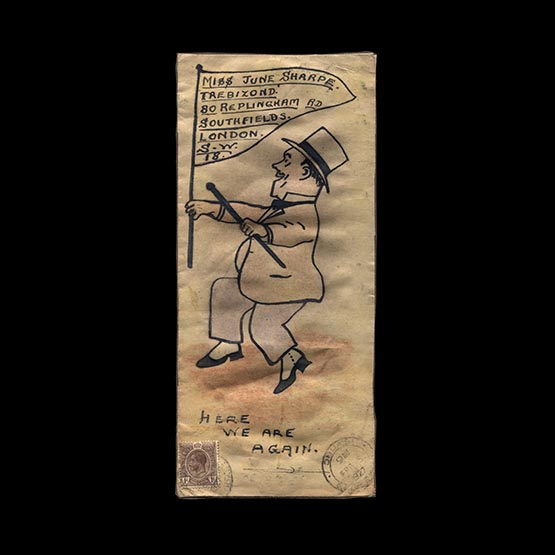 MISS JUNE SHARPE.
TREBIZOND.
80 REPLINGHAM RD
SOUTHFIELDS.
LONDON.
S.W.
18.
HERE
WE ARE
AGAIN.